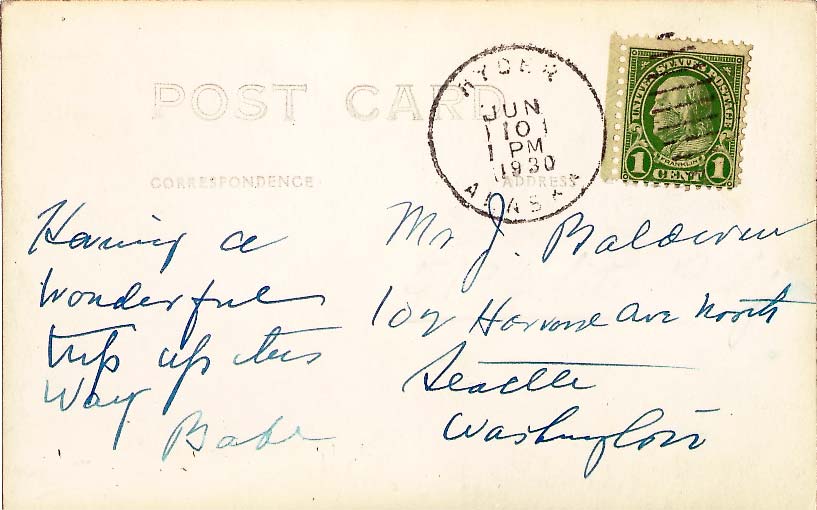 POST CARD
CORRESPONDENCE
ADDRESS
HYDER
JUN
10
PM
1930
ALASKA
UNITED STATES POSTAGE
FRANKLIN
1 CENT 1
Having a
wonderful
trip up this
way
Babe
Mr J. Baldwin
Harvard Ave North
Seattle
Washington